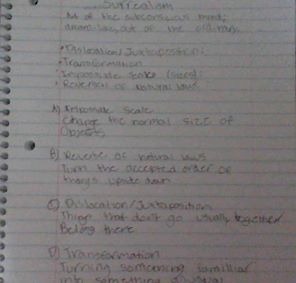 Surrealism
Art of the subconscious mind;
dream like, out of the ordinary.
• Dislocation/Juxtaposition;
• Transformation
• Impossible Scale (sizes);
• Reversal of Natural laws.
A) Impossible Scale
Change the normal size of
Objects
B) Reverse of natural laws
Turn the accepted order of
things upside down
C) Dislocation/Juxtaposition
Things that don't go usually together
Being there
D) Transformation
Turning something familliar
into something unusual